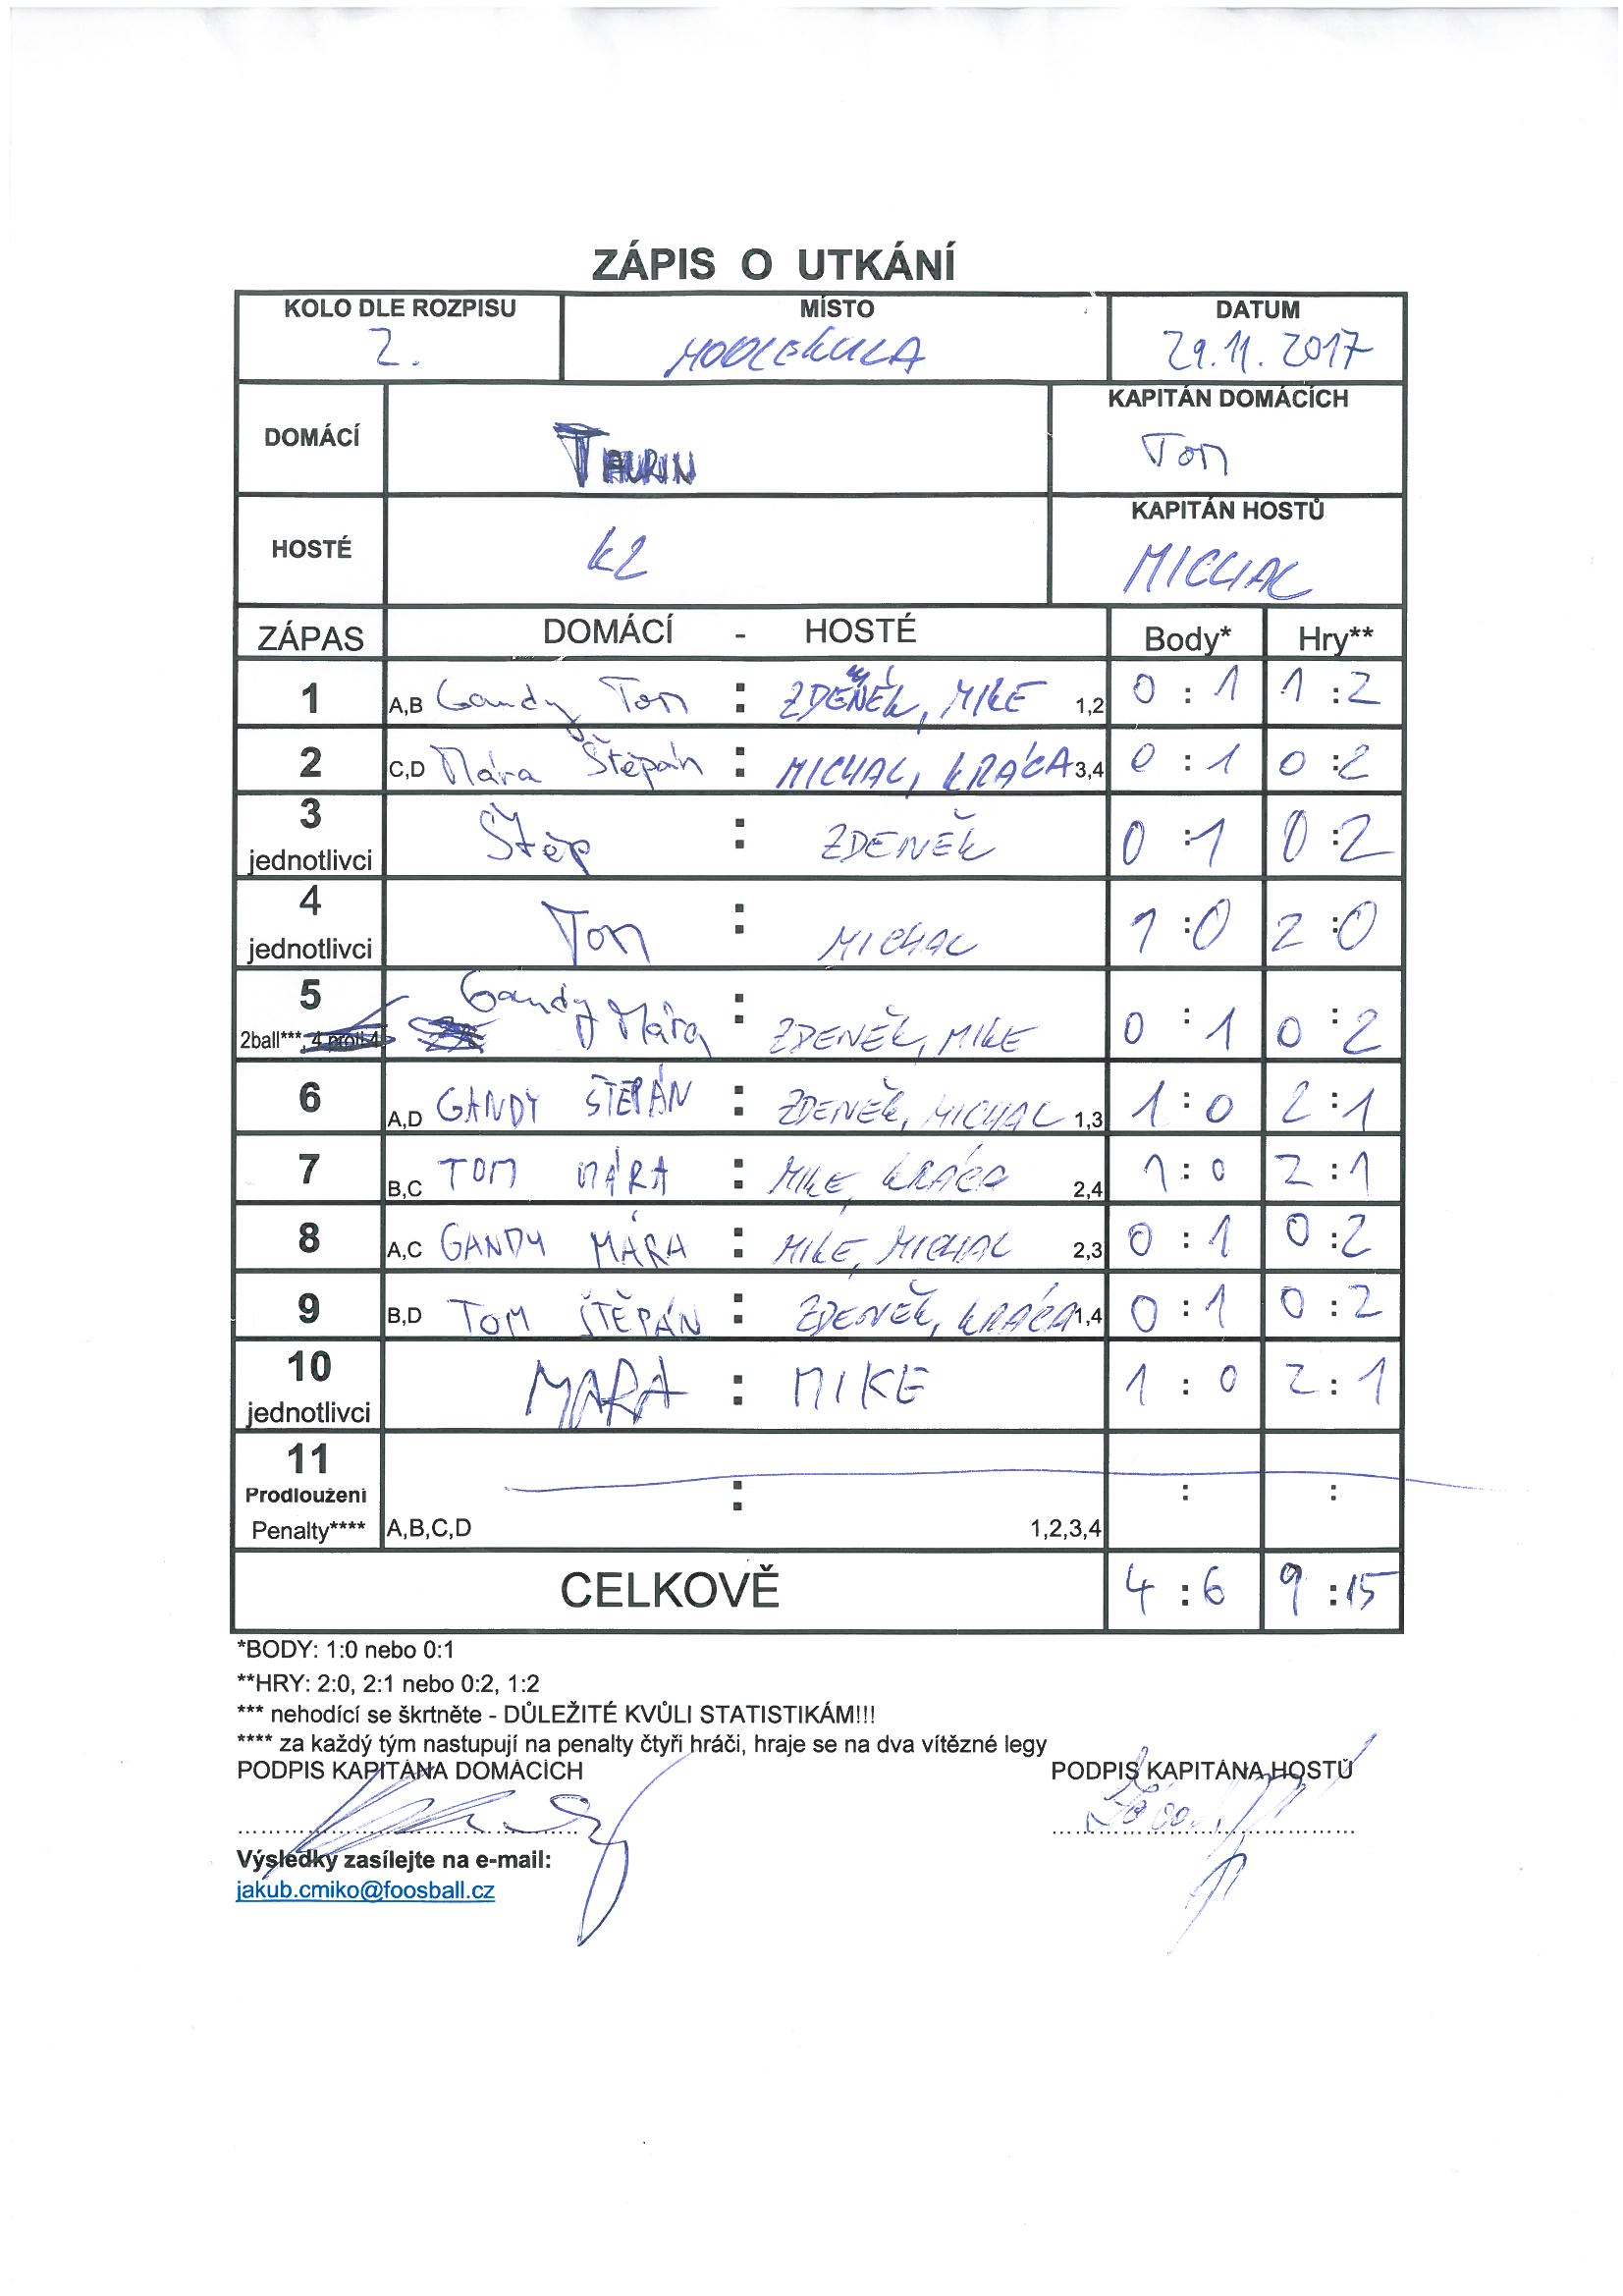 ZÁPIS O UTKÁNÍ
KOLO DLE ROZPISU MÍSTO DATUM
2. MOOLEKULA 29.11.2017
DOMÁCÍ KAPITÁN DOMÁCÍCH
Tom
HOSTÉ K2 KAPITÁN HOSTŮ
MICHAL
ZÁPAS DOMÁCÍ - HOSTÉ Body* Hry**
1 A,B Gandy Tom : ZDENĚK, MIKE 1,2 0 : 1 1 : 2
2 C,D Mára Štěpán : MICHAL, KRÁČA 3,4 0 : 1 0 : 2
3 jednotlivci Štěp : ZDENĚK 0 : 1 0 : 2
4 jednotlivci Tom : MICHAL 1 : 0 2 : 0
5 2ball***, 4 proti 4 Gandy Mára : ZDENĚK, MIKE 0 : 1 0 : 2
6 A,D GANDY ŠTĚPÁN : ZDENĚK, MICHAL 1,3 1 : 0 2 : 1
7 B,C TOM MÁRA : MIKE, KRÁČA 2,4 1 : 0 2 : 1
8 A,C GANDY MÁRA : MIKE, MICHAL 2,3 0 : 1 0 : 2
9 B,D TOM ŠTĚPÁN : ZDENĚK, KRÁČA 1,4 0 : 1 0 : 2
10 jednotlivci MÁRA : MIKE 1 : 0 2 : 1
11
Prodloužení : : :
Penalty**** A,B,C,D 1,2,3,4
CELKOVĚ 4 : 6 9 : 15
*BODY: 1:0 nebo 0:1
**HRY: 2:0, 2:1 nebo 0:2, 1:2
*** nehodící se škrtněte - DŮLEŽITÉ KVŮLI STATISTIKÁM!!!
**** za každý tým nastupují na penalty čtyři hráči, hraje se na dva vítězné legy
PODPIS KAPITÁNA DOMÁCÍCH PODPIS KAPITÁNA HOSTŮ
Výsledky zasílejte na e-mail:
jakub.cmiko@foosball.cz